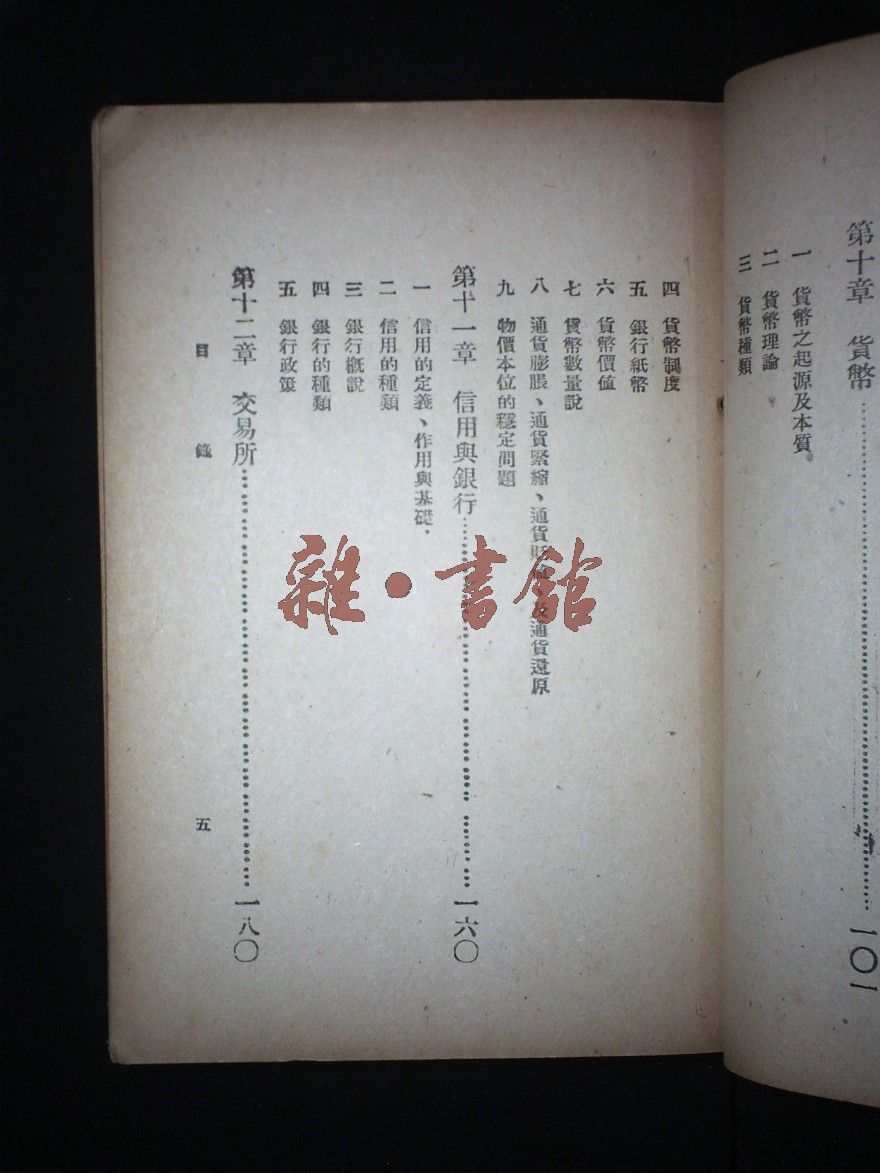 第十章 貨幣……一〇一
一 貨幣之起源及本質
二 貨幣理論
三 貨幣種類
四 貨幣制度
五 銀行紙幣
六 貨幣價值
七 貨幣數量說
八 通貨膨脹、通貨緊縮、通貨 通貨還原
九 物價本位的穩定問題
第十一章 信用與銀行……一六〇
一 信用的定義、作用與基礎．
二 信用的種類
三 銀行概說
四 銀行的種類
五 銀行政策
第十二章 交易所……一八〇
目 錄 五
雜•書館